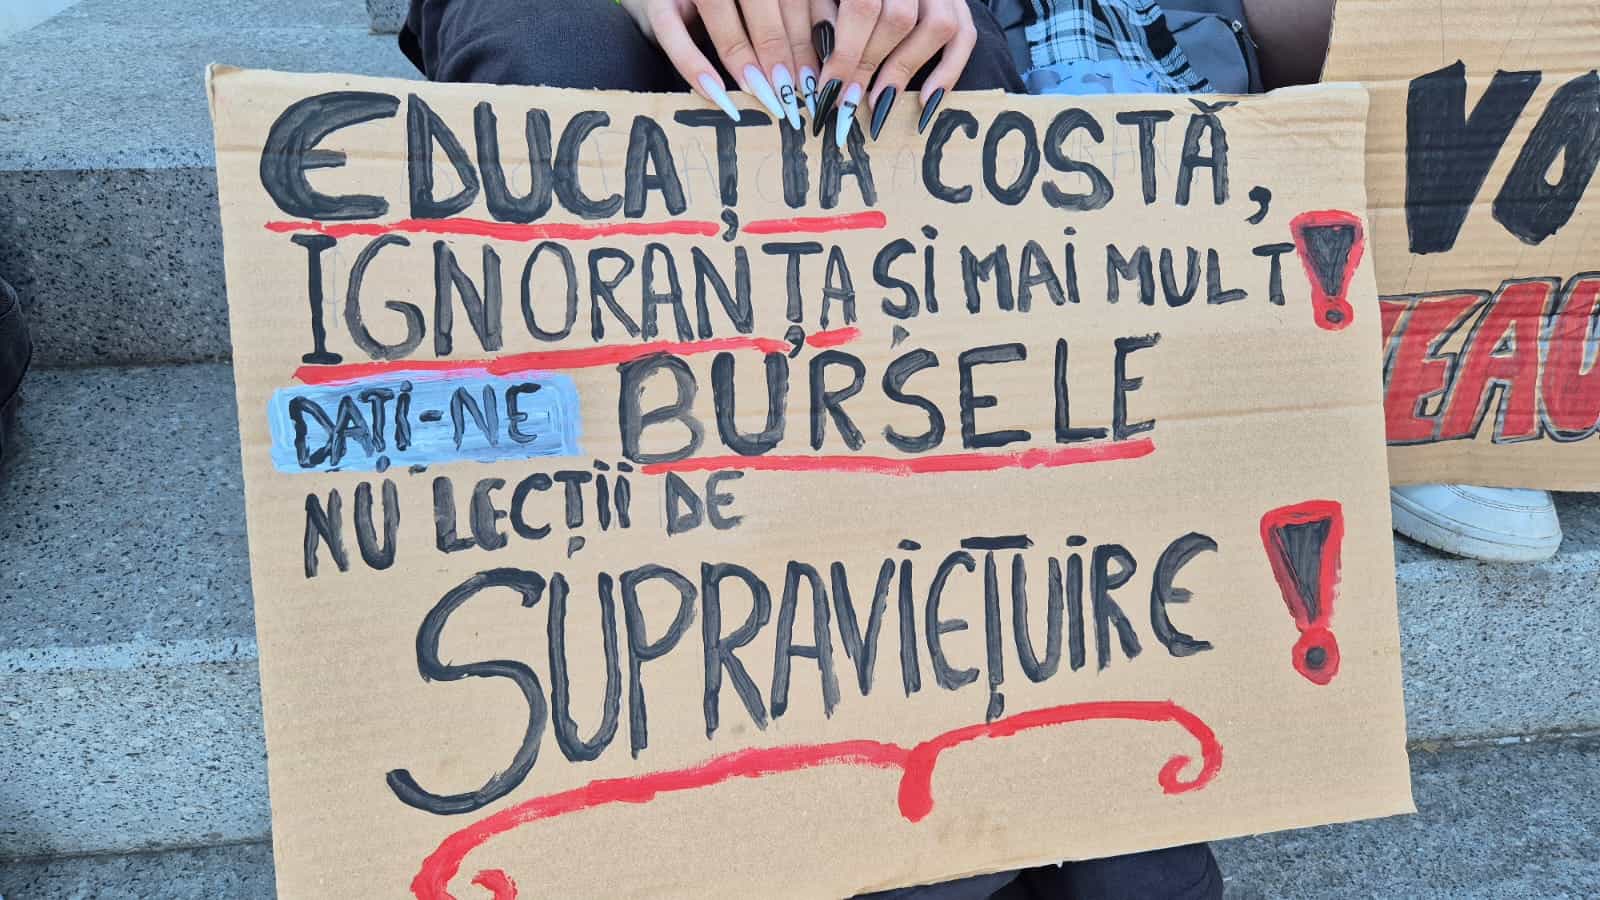 EDUCAȚIA COSTĂ,
IGNORANȚA ȘI MAI MULT!
DAȚI-NE BURSELE
NU LECȚII DE
SUPRAVIEȚUIRE!